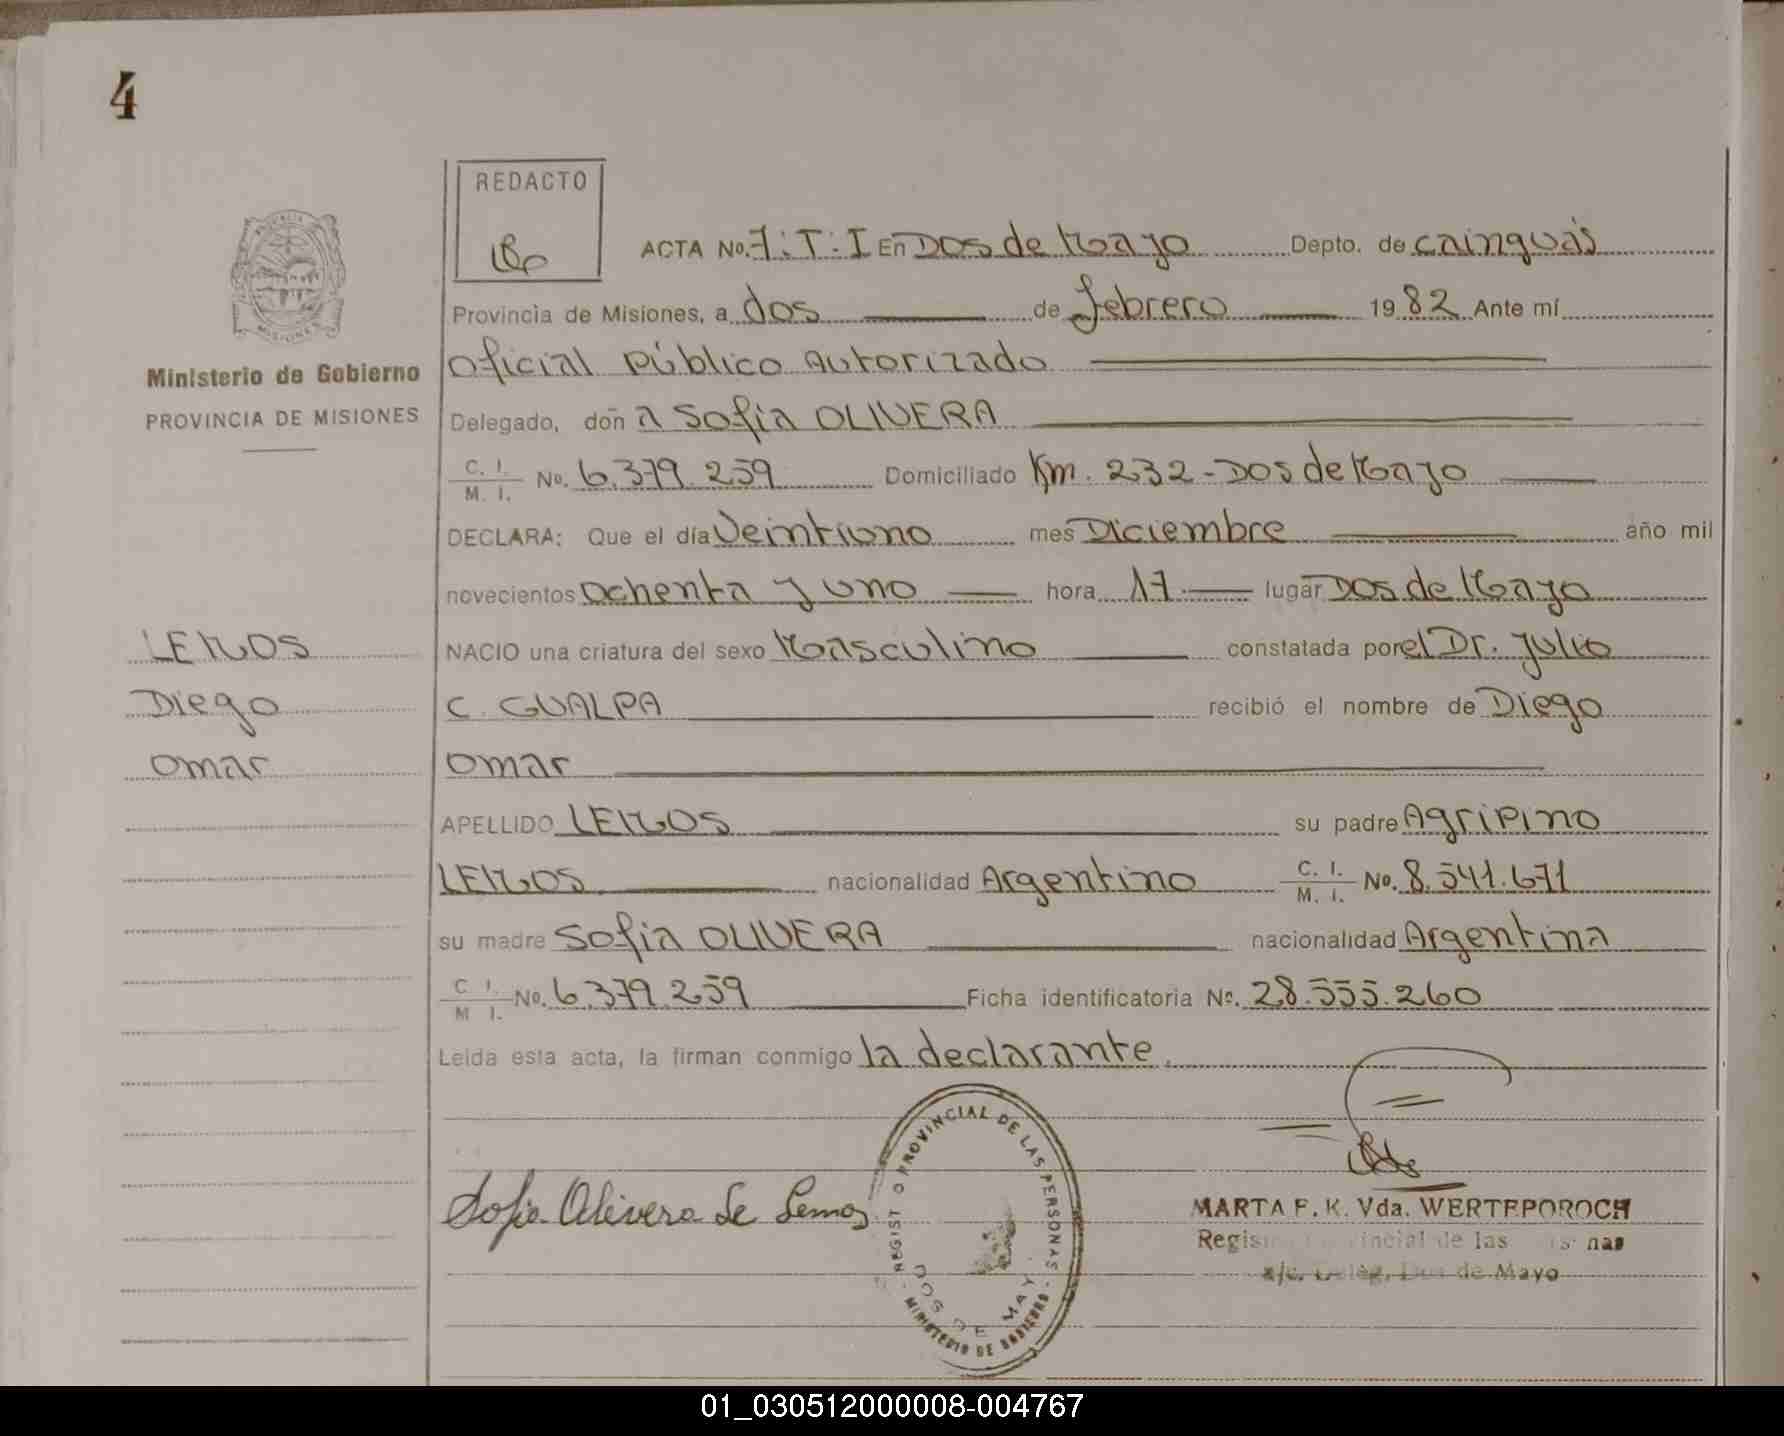 4
REDACTO
ACTA No. 7:T:I En Dos de Mayo Depto. de Cainguás
Provincia de Misiones, a dos de febrero 1982 Ante mí
Oficial Público Autorizado
Ministerio de Gobierno
PROVINCIA DE MISIONES
Delegado, doña Sofia OLIVERA
C. I. M. I. No. 6.379.259 Domiciliado Km. 232 - Dos de Mayo
DECLARA: Que el día Veintiuno mes Diciembre año mil
novecientos ochenta y uno hora 17 lugar Dos de Mayo
LEMOS
NACIO una criatura del sexo Masculino constatada por el Dr. Julio
Diego
C. GUALPA recibió el nombre de Diego
Omar
Omar
APELLIDO LEMOS su padre Agripino
LEMOS nacionalidad Argentino C. I. M. I. No. 8.541.671
su madre Sofia OLIVERA nacionalidad Argentina
C. I. M. I. No. 6.379.259 Ficha identificatoria Nº. 28.555.260
Leida esta acta, la firman conmigo la declarante.
Sofia Olivera de Lemos
REGISTRO PROVINCIAL DE LAS PERSONAS
DOS DE MAYO
MINISTERIO DE GOBIERNO
MARTA F. K. Vda. WERTEPOROCH
Registro Provincial de las Personas
a/c. Deleg. Dos de Mayo
01_030512000008-004767